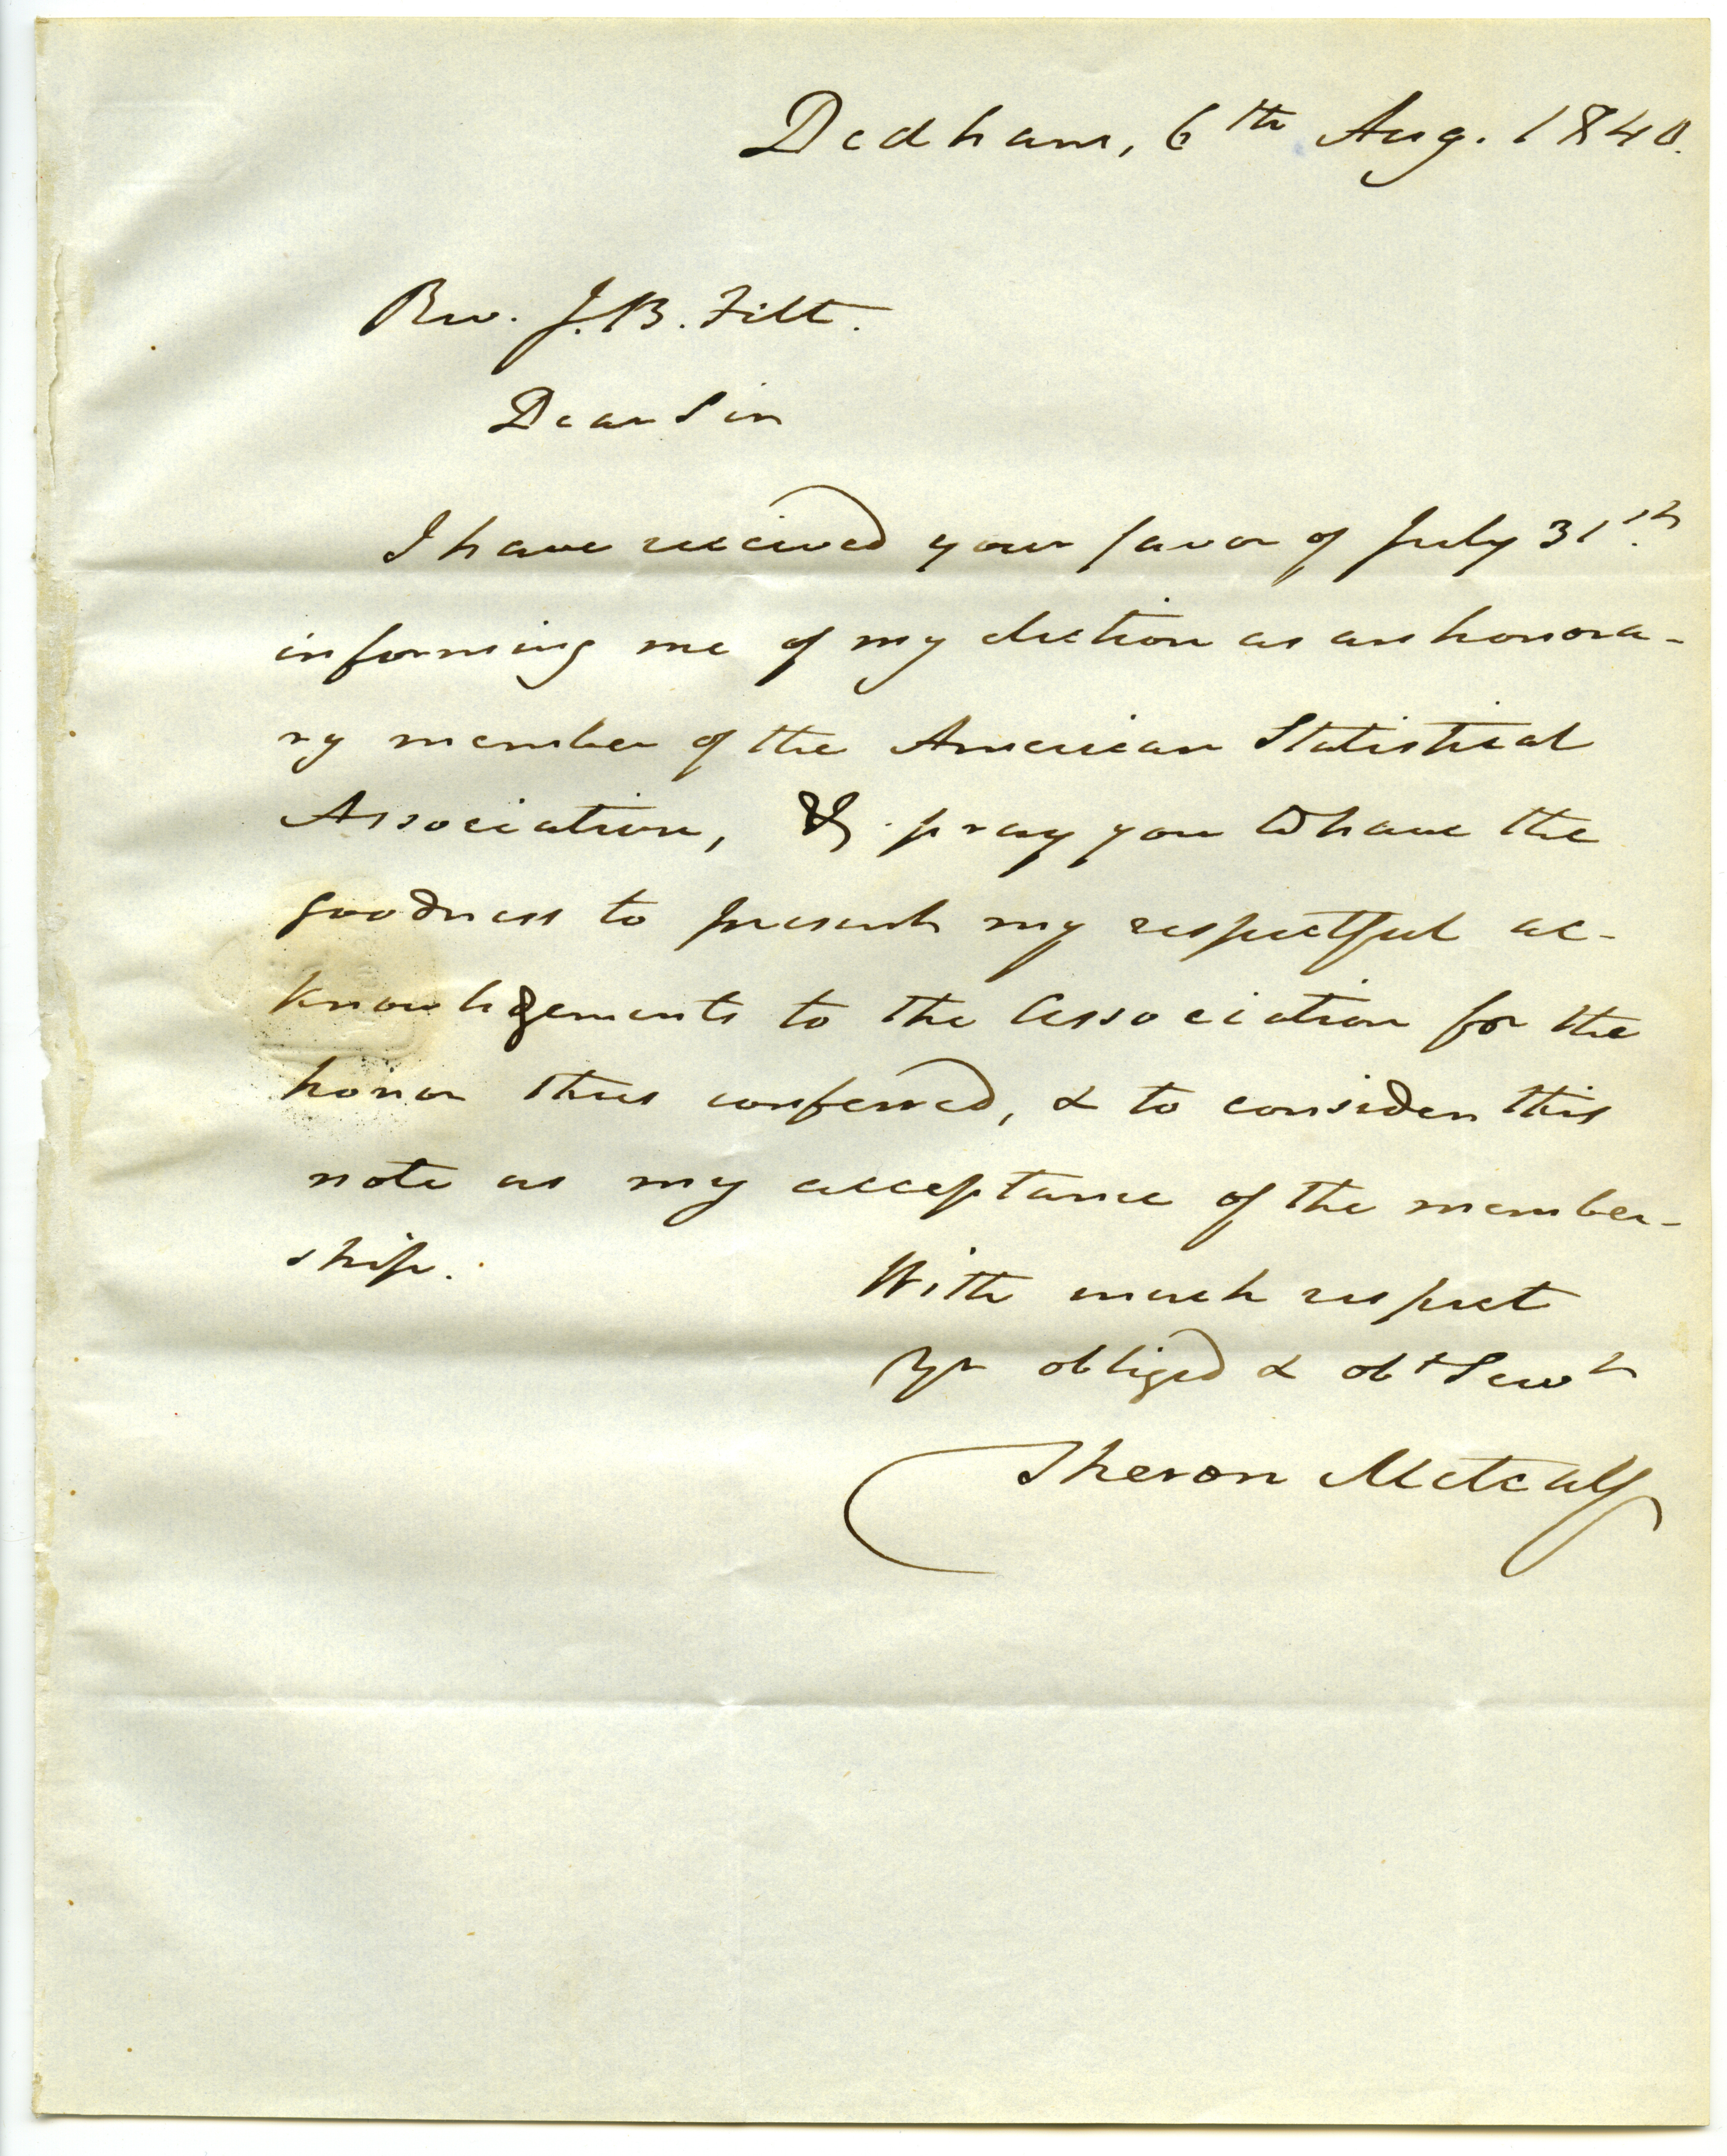 Dedham, 6th Aug. 1840.
Rev. J. B. Felt.
Dear Sir
I have received your favor of July 31st.
informing me of my election as an honora-
ry member of the American Statistical
Association, & pray you to have the
goodness to present my respectful ac-
knowledgements to the Association for the
honor thus conferred, & to consider this
note as my acceptance of the member-
ship.
With much respect
Yr obliged & obt Servt
Theron Metcalf